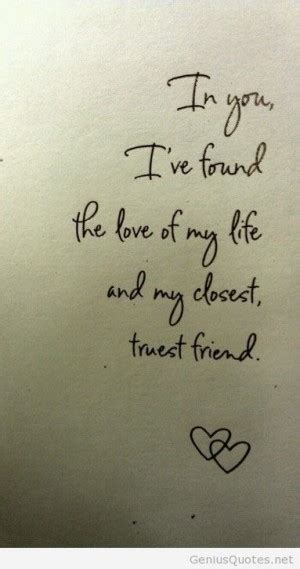 In you,
I've found
the love of my life
and my closest,
truest friend.
GeniusQuotes.net